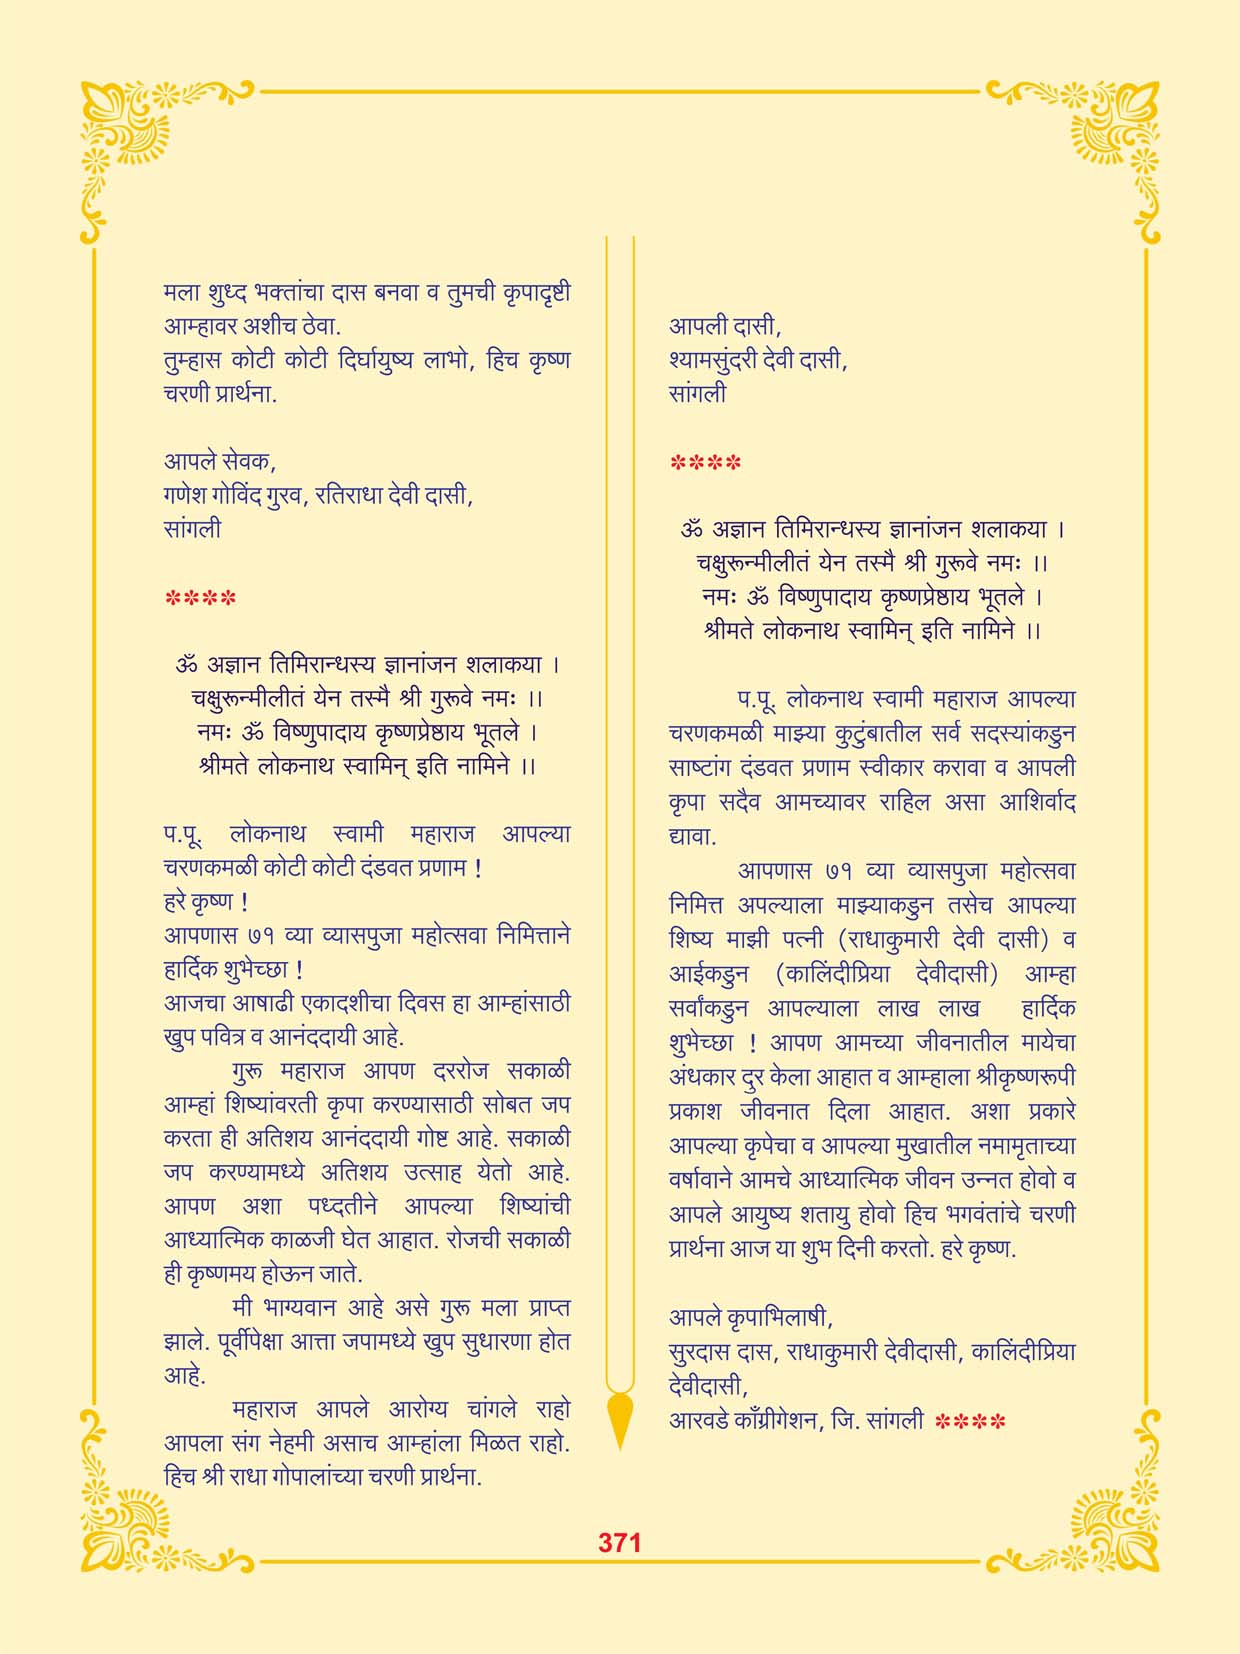 मला शुध्द भक्तांचा दास बनवा व तुमची कृपादृष्टी
आम्हावर अशीच ठेवा.
तुम्हास कोटी कोटी दिर्घायुष्य लाभो, हिच कृष्ण
चरणी प्रार्थना.
आपले सेवक,
गणेश गोविंद गुरव, रतिराधा देवी दासी,
सांगली
****
ॐ अज्ञान तिमिरान्धस्य ज्ञानांजन शलाकया ।
चक्षुरून्मीलीतं येन तस्मै श्री गुरूवे नमः ।।
नमः ॐ विष्णुपादाय कृष्णप्रेष्ठाय भूतले ।
श्रीमते लोकनाथ स्वामिन् इति नामिने ।।
प.पू. लोकनाथ स्वामी महाराज आपल्या
चरणकमळी कोटी कोटी दंडवत प्रणाम !
हरे कृष्ण !
आपणास ७१ व्या व्यासपुजा महोत्सवा निमित्ताने
हार्दिक शुभेच्छा !
आजचा आषाढी एकादशीचा दिवस हा आम्हांसाठी
खुप पवित्र व आनंददायी आहे.
गुरू महाराज आपण दररोज सकाळी
आम्हां शिष्यांवरती कृपा करण्यासाठी सोबत जप
करता ही अतिशय आनंददायी गोष्ट आहे. सकाळी
जप करण्यामध्ये अतिशय उत्साह येतो आहे.
आपण अशा पध्दतीने आपल्या शिष्यांची
आध्यात्मिक काळजी घेत आहात. रोजची सकाळी
ही कृष्णमय होऊन जाते.
मी भाग्यवान आहे असे गुरू मला प्राप्त
झाले. पूर्वीपेक्षा आत्ता जपामध्ये खुप सुधारणा होत
आहे.
महाराज आपले आरोग्य चांगले राहो
आपला संग नेहमी असाच आम्हांला मिळत राहो.
हिच श्री राधा गोपालांच्या चरणी प्रार्थना.
आपली दासी,
श्यामसुंदरी देवी दासी,
सांगली
****
ॐ अज्ञान तिमिरान्धस्य ज्ञानांजन शलाकया ।
चक्षुरून्मीलीतं येन तस्मै श्री गुरूवे नमः ।।
नमः ॐ विष्णुपादाय कृष्णप्रेष्ठाय भूतले ।
श्रीमते लोकनाथ स्वामिन् इति नामिने ।।
प.पू. लोकनाथ स्वामी महाराज आपल्या
चरणकमळी माझ्या कुटुंबातील सर्व सदस्यांकडुन
साष्टांग दंडवत प्रणाम स्वीकार करावा व आपली
कृपा सदैव आमच्यावर राहिल असा आशिर्वाद
द्यावा.
आपणास ७१ व्या व्यासपुजा महोत्सवा
निमित्त अपल्याला माझ्याकडुन तसेच आपल्या
शिष्य माझी पत्नी (राधाकुमारी देवी दासी) व
आईकडुन (कालिंदीप्रिया देवीदासी) आम्हा
सर्वांकडुन आपल्याला लाख लाख हार्दिक
शुभेच्छा ! आपण आमच्या जीवनातील मायेचा
अंधकार दुर केला आहात व आम्हाला श्रीकृष्णरूपी
प्रकाश जीवनात दिला आहात. अशा प्रकारे
आपल्या कृपेचा व आपल्या मुखातील नमामृताच्या
वर्षावाने आमचे आध्यात्मिक जीवन उन्नत होवो व
आपले आयुष्य शतायु होवो हिच भगवंतांचे चरणी
प्रार्थना आज या शुभ दिनी करतो. हरे कृष्ण.
आपले कृपाभिलाषी,
सुरदास दास, राधाकुमारी देवीदासी, कालिंदीप्रिया
देवीदासी,
आरवडे काँग्रीगेशन, जि. सांगली ****
371